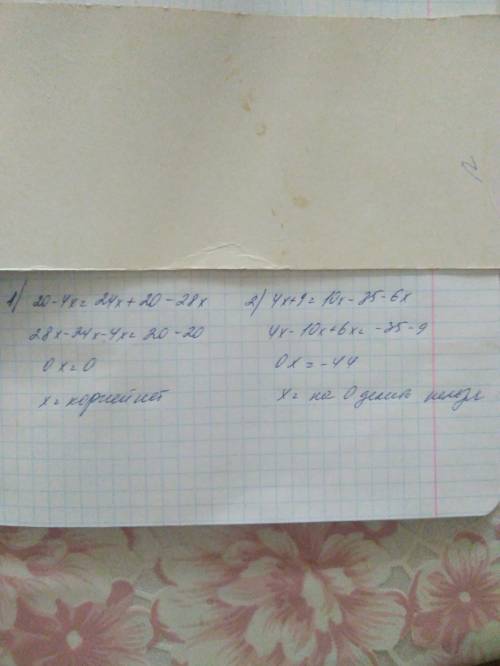 1) 20-4x=24x+20-28x
28x-24x-4x=20-20
0x=0
x= корней нет
2) 4x+9=10x-35-6x
4x-10x+6x=-35-9
0x=-44
x= на 0 делить нельзя